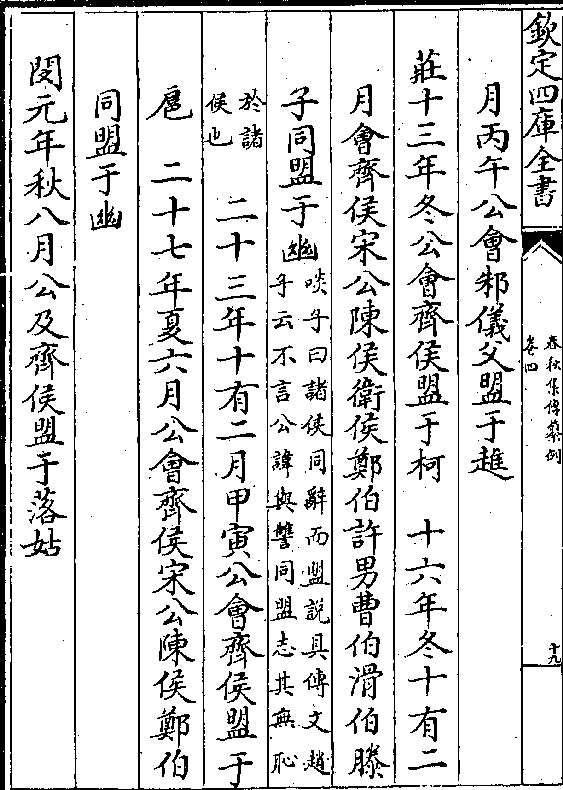 欽定四庫全書
春秋集傳纂例
卷四
十九
月丙午公會邾儀父盟于趡
莊十三年冬公會齊侯盟于柯　十六年冬十有二
月會齊侯宋公陳侯衛侯鄭伯許男曹伯滑伯滕
子同盟于幽
啖子曰諸侯同辭而盟説具傳文趙
子云不言公諱與讐同盟志其無恥
於諸
侯也
二十三年十有二月甲寅公會齊侯盟于
扈　二十七年夏六月公會齊侯宋公陳侯鄭伯
同盟于幽
閔元年秋八月公及齊侯盟于落姑